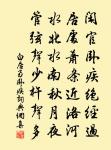 閑官臥疾絕經過
居處蕭條近洛河
水北水南秋月夜
管絃聲少杵聲多
白居易臥疾詞典網集